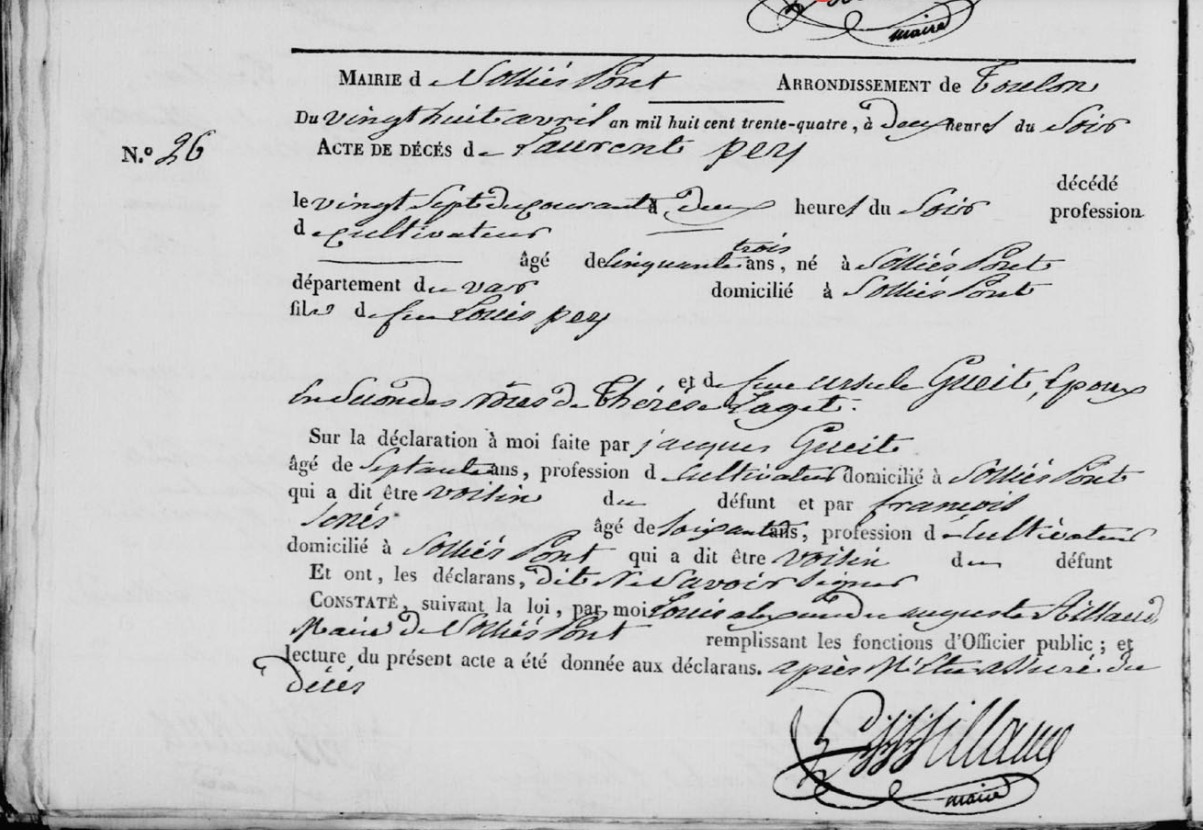 maire
MAIRIE de Solliés Pont ARRONDISSEMENT de Toulon
Du vingt huit avril an mil huit cent trente-quatre, à Deux heures du Soir
N.º 26 ACTE DE DÉCÉS de Laurent pey
décédé
le vingt Sept du courant à Deux heures du Soir profession
de Cultivateur
trois
âgé de Cinquante ans, né à Solliés Pont
département du var domicilié à Solliés Pont
fils de feu Louis pey
et de feue ursule Gueit, Epoux
En Secondes nôces de Thérèse Laget.
Sur la déclaration à moi faite par jacques Gueit
âgé de Septante ans, profession de Cultivateur domicilié à Solliés Pont
qui a dit être voisin du défunt et par françois
Senés âgé de Soixante ans, profession de Cultivateur
domicilié à Solliés Pont qui a dit être voisin du défunt
Et ont, les déclarans, dit Ne Savoir Signer
CONSTATÉ, suivant la loi, par moi Louis alexandre auguste Aillaud
Maire de Solliés Pont remplissant les fonctions d'Officier public ; et
lecture du présent acte a été donnée aux déclarans. après M'être assuré du
Décès
Aillaud
maire